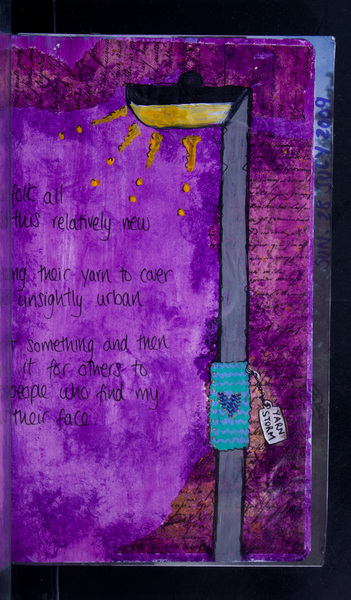 folk all
this relatively new
their yarn to cover
unsightly urban
something and then
it for others to
people who find my
their face.
YARN
STORM
SUN. 26 JULY 2009